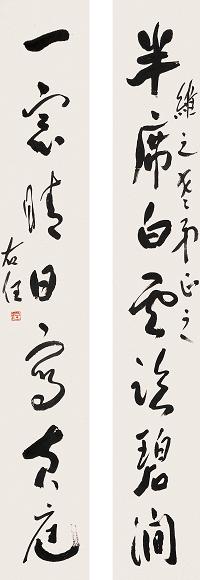 維之老弟正之
半席白雲碧澗
一窗晴日寫黃庭
右任